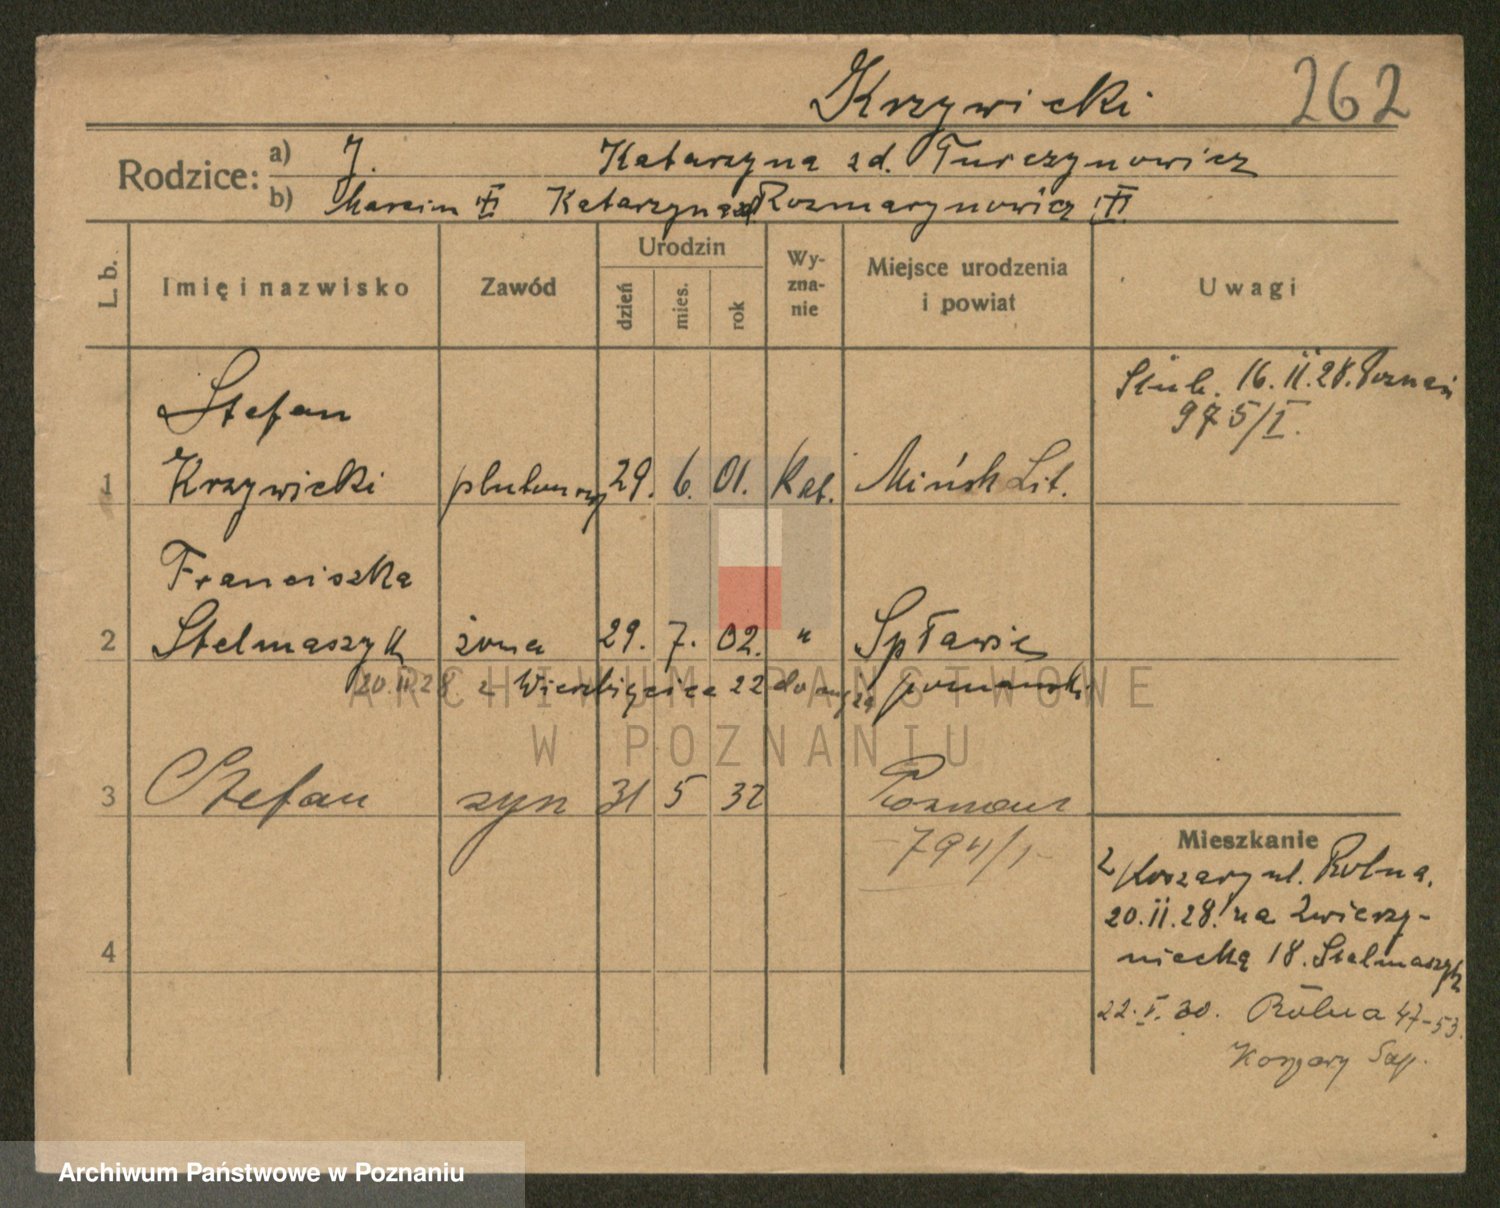 Krzywicki 262
Rodzice: a) J. Katarzyna zd. Turczynowicz
b) Marcin Katarzyna zd Rozmarynowicz
L. b. Imię i nazwisko Zawód Urodzin dzień mies. rok Wyznanie Miejsce urodzenia i powiat Uwagi
Stefan
Ślub. 16.II.28. Poznań
975/I.
1 Krzywicki plutonowy 29. 6. 01. Kat. Mińsk Lit.
Franciszka
2 Stelmaszyk żona 29. 7. 02. " Spławie
20.II.28 z Wierzbięcice 22 do męża poznański
3 Stefan syn 31 5 32 Poznań
794/I
4
Mieszkanie
Koszary ul. Rolna.
20.II.28. na Zwierzy-
niecką 18. Stelmaszyk
22.I.30. Rolna 47-53.
Koszary Sap.
ARCHIWUM PAŃSTWOWE
W POZNANIU
Archiwum Państwowe w Poznaniu